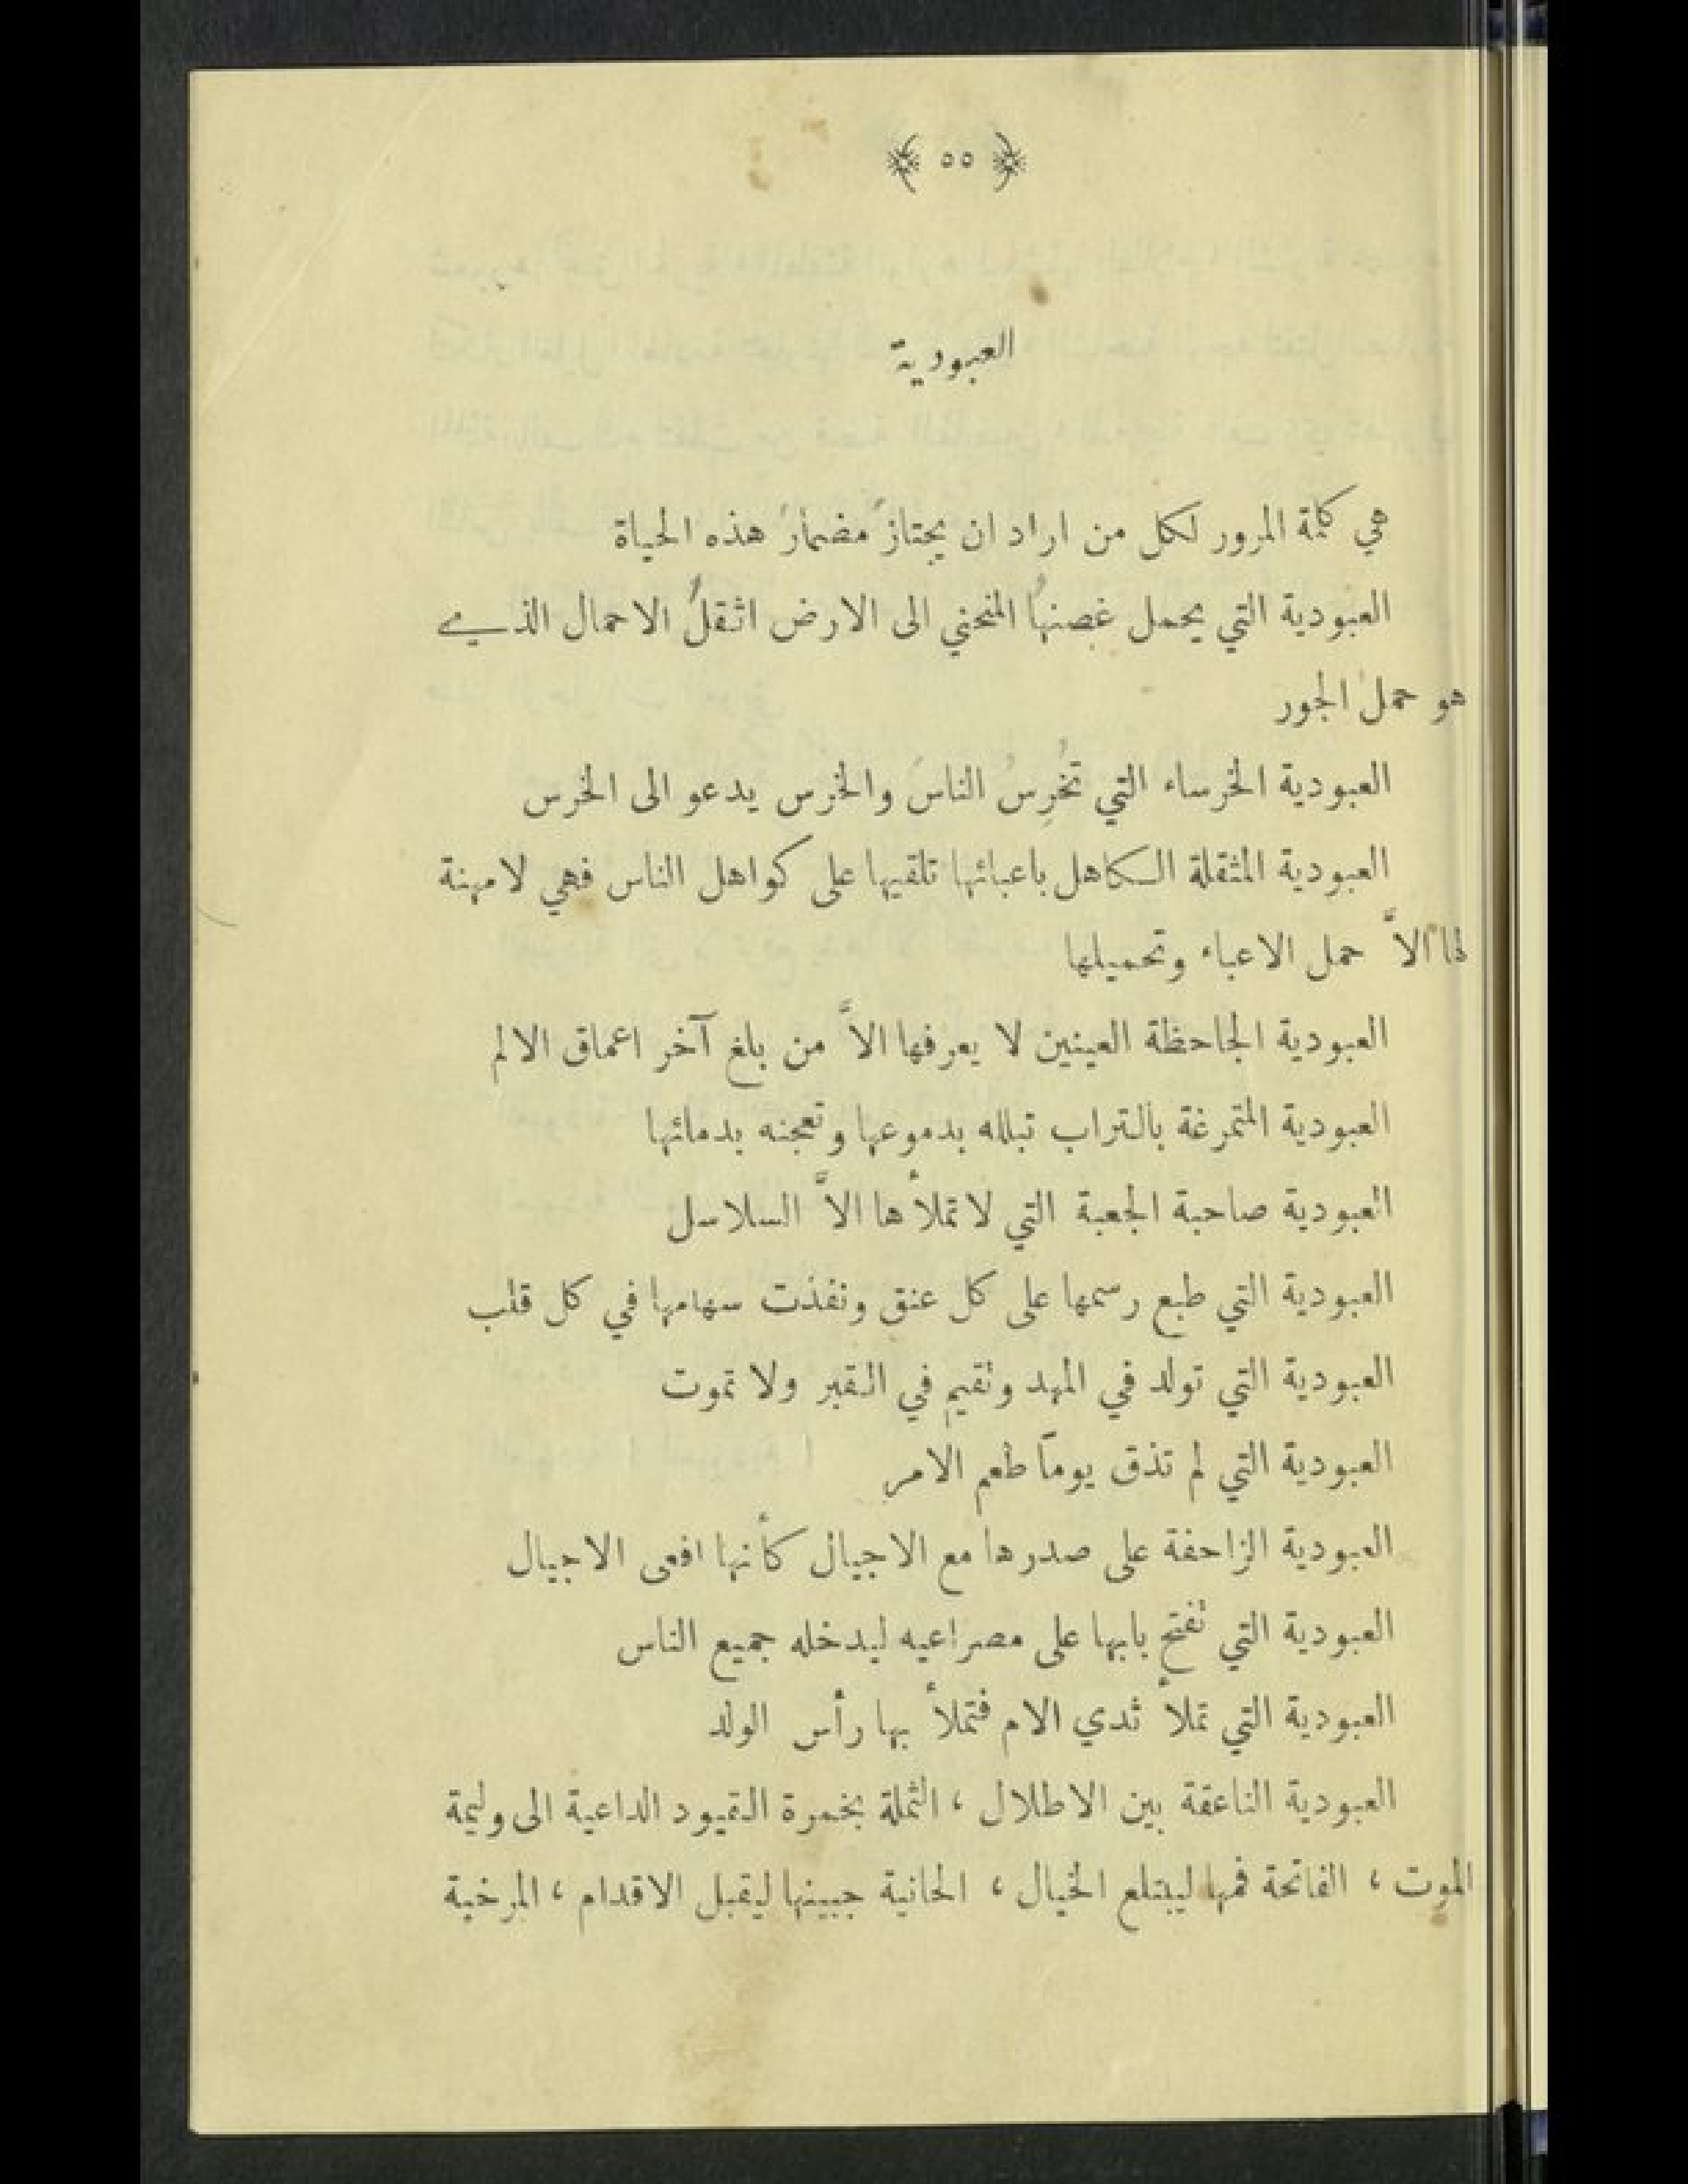 ﴿ ٥٥ ﴾
العبودية
هي كلمة المرور لكل من اراد ان يجتازَ مضمارَ هذه الحياة
العبودية التي يحمل غصنها المنحني الى الارض اثقلَ الاحمال الذي
هو حمل الجور
العبودية الخرساء التي تُخرِسُ الناسَ والخرس يدعو الى الخرس
العبودية المثقلة الكاهل باعبائها تلقيها على كواهل الناس فهي لا مهنة
لها الاَّ حمل الاعباء وتحميلها
العبودية الجاحظة العينين لا يعرفها الاَّ من بلغ آخر اعماق الالم
العبودية المتمرغة بالتراب تبلله بدموعها وتعجنه بدمائها
العبودية صاحبة الجعبة التي لا تملأها الاَّ السلاسل
العبودية التي طبع رسمها على كل عنق ونفذت سهامها في كل قلب
العبودية التي تولد في المهد وتقيم في القبر ولا تموت
العبودية التي لم تذق يوماً طعم الامر
العبودية الزاحفة على صدرها مع الاجيال كأنها افعى الاجيال
العبودية التي تفتح بابها على مصراعيه ليدخله جميع الناس
العبودية التي تملأ ثدي الام فتملأ بها رأس الولد
العبودية الناعقة بين الاطلال ، الثملة بخمرة القيود الداعية الى وليمة
الموت ، الفاتحة فمها ليبتلع الخيال ، الحانية جبينها ليقبل الاقدام ، المرخية